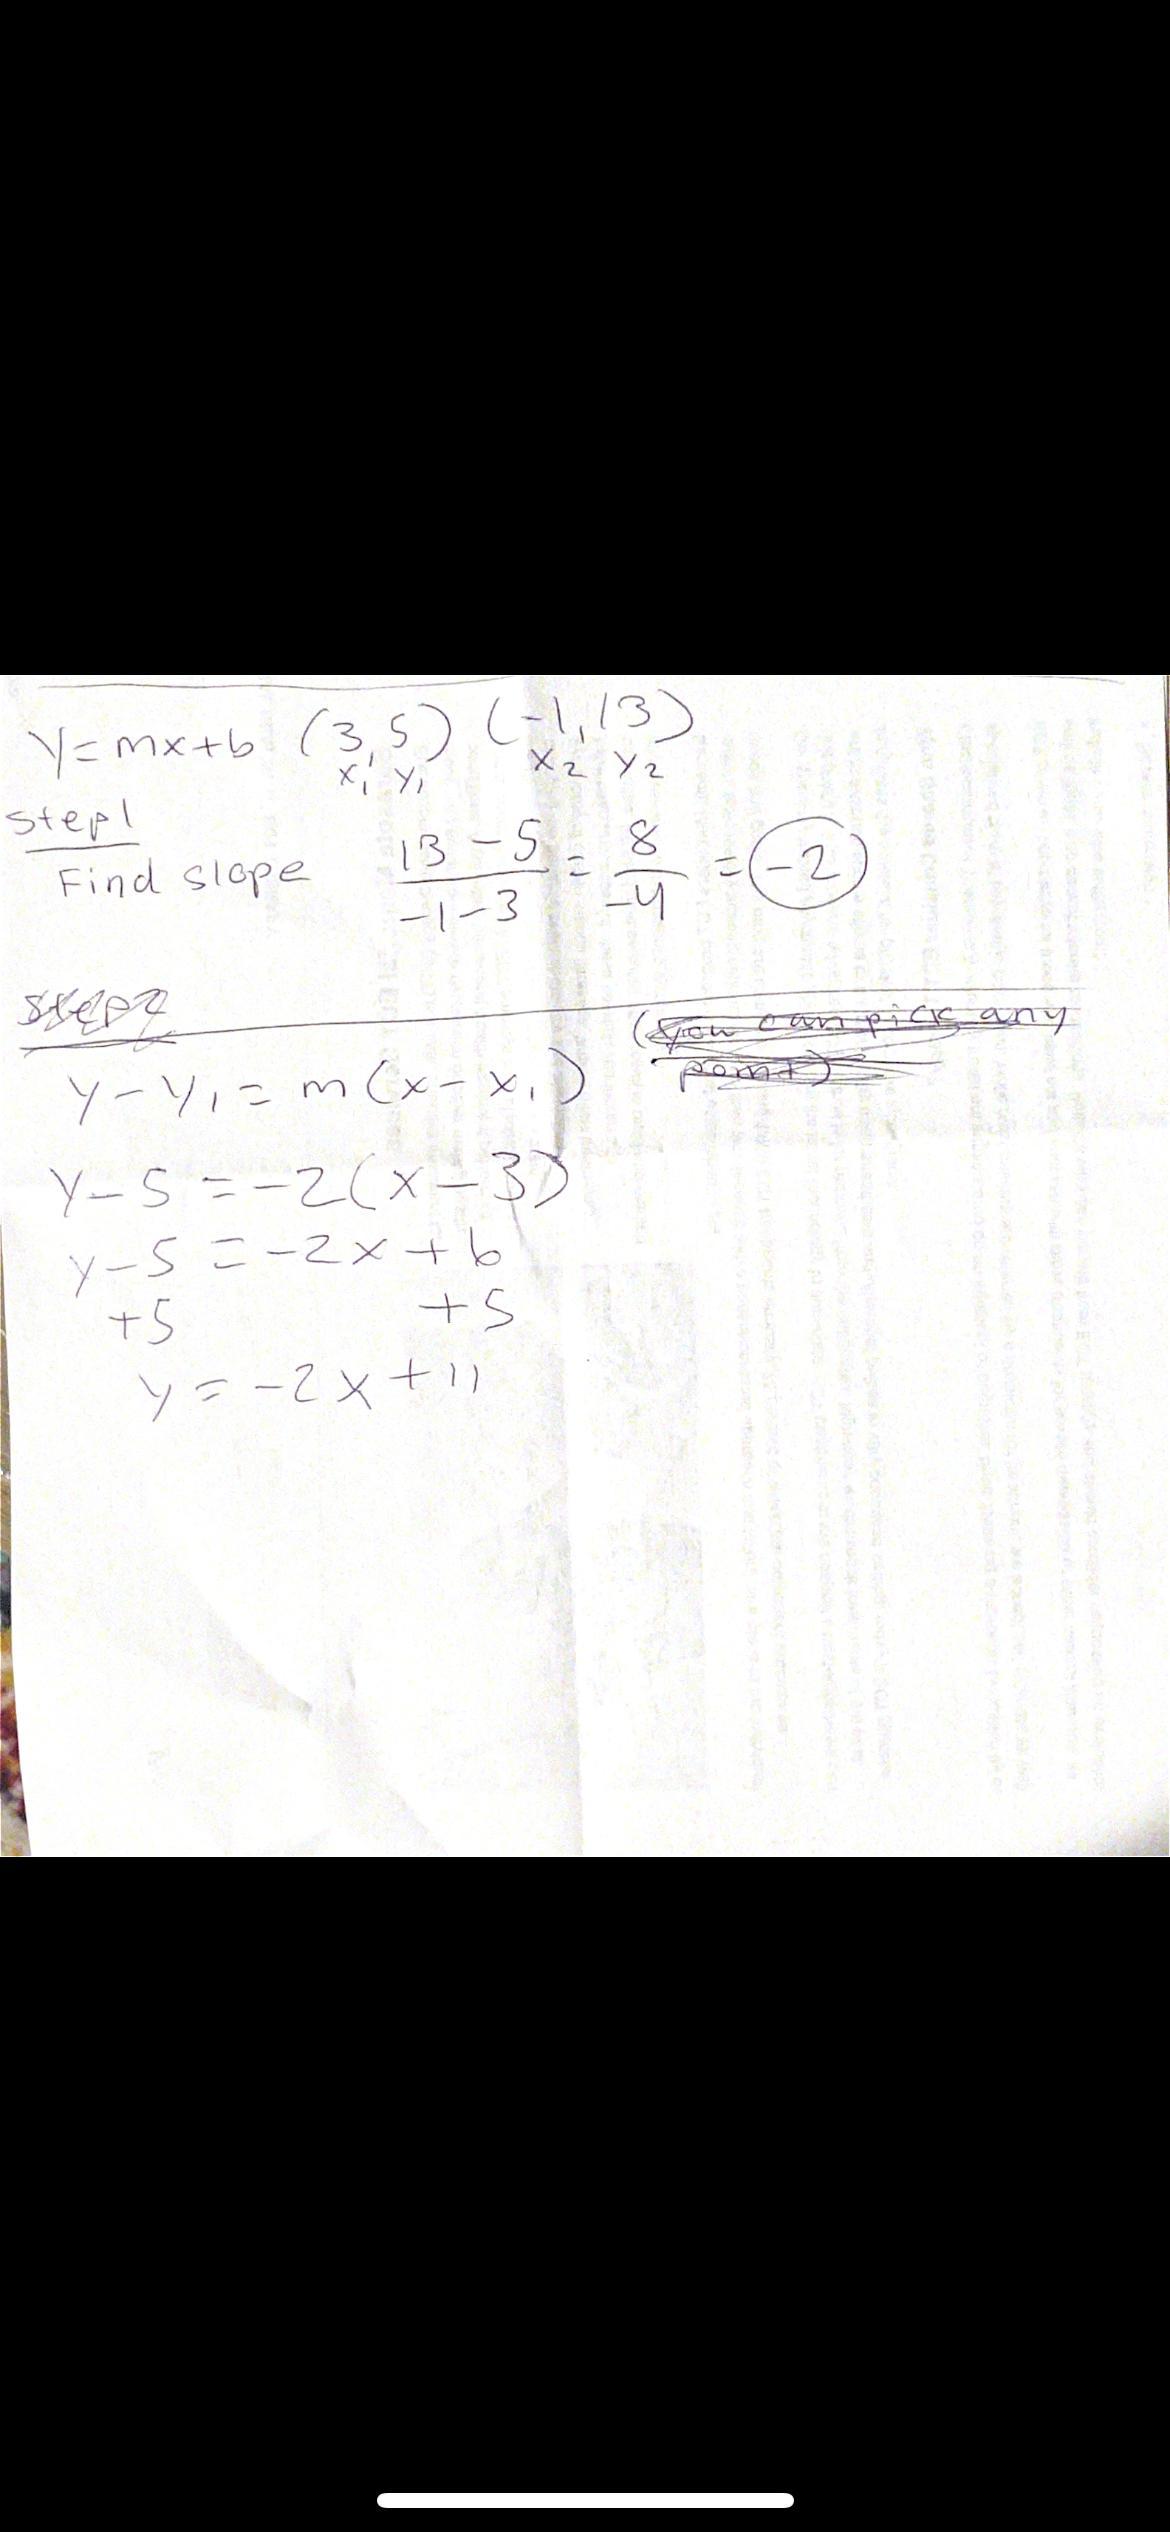 y = mx+b (3, 5) (-1, 13)
x₁ y₁ x₂ y₂
step 1
Find slope 13 - 5 / -1 - 3 = 8 / -4 = -2
step 2
(you can pick any
point)
y - y₁ = m (x - x₁)
y - 5 = -2(x - 3)
y - 5 = -2x + 6
+5 +5
y = -2x + 11